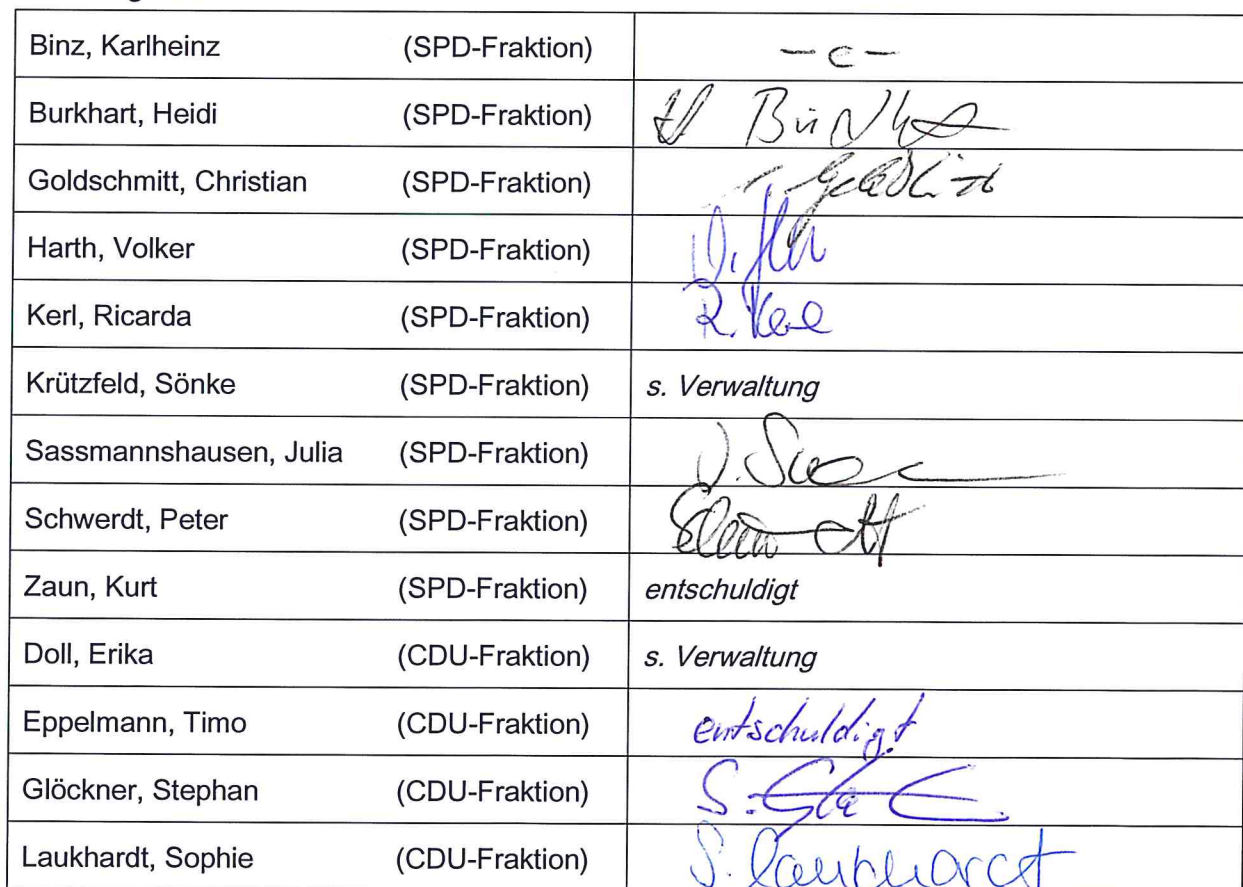 Binz, Karlheinz (SPD-Fraktion) – c –
Burkhart, Heidi (SPD-Fraktion)
Goldschmitt, Christian (SPD-Fraktion)
Harth, Volker (SPD-Fraktion)
Kerl, Ricarda (SPD-Fraktion) R. Kerl
Krützfeld, Sönke (SPD-Fraktion) s. Verwaltung
Sassmannshausen, Julia (SPD-Fraktion)
Schwerdt, Peter (SPD-Fraktion)
Zaun, Kurt (SPD-Fraktion) entschuldigt
Doll, Erika (CDU-Fraktion) s. Verwaltung
Eppelmann, Timo (CDU-Fraktion) entschuldigt
Glöckner, Stephan (CDU-Fraktion)
Laukhardt, Sophie (CDU-Fraktion) S. Laukhardt